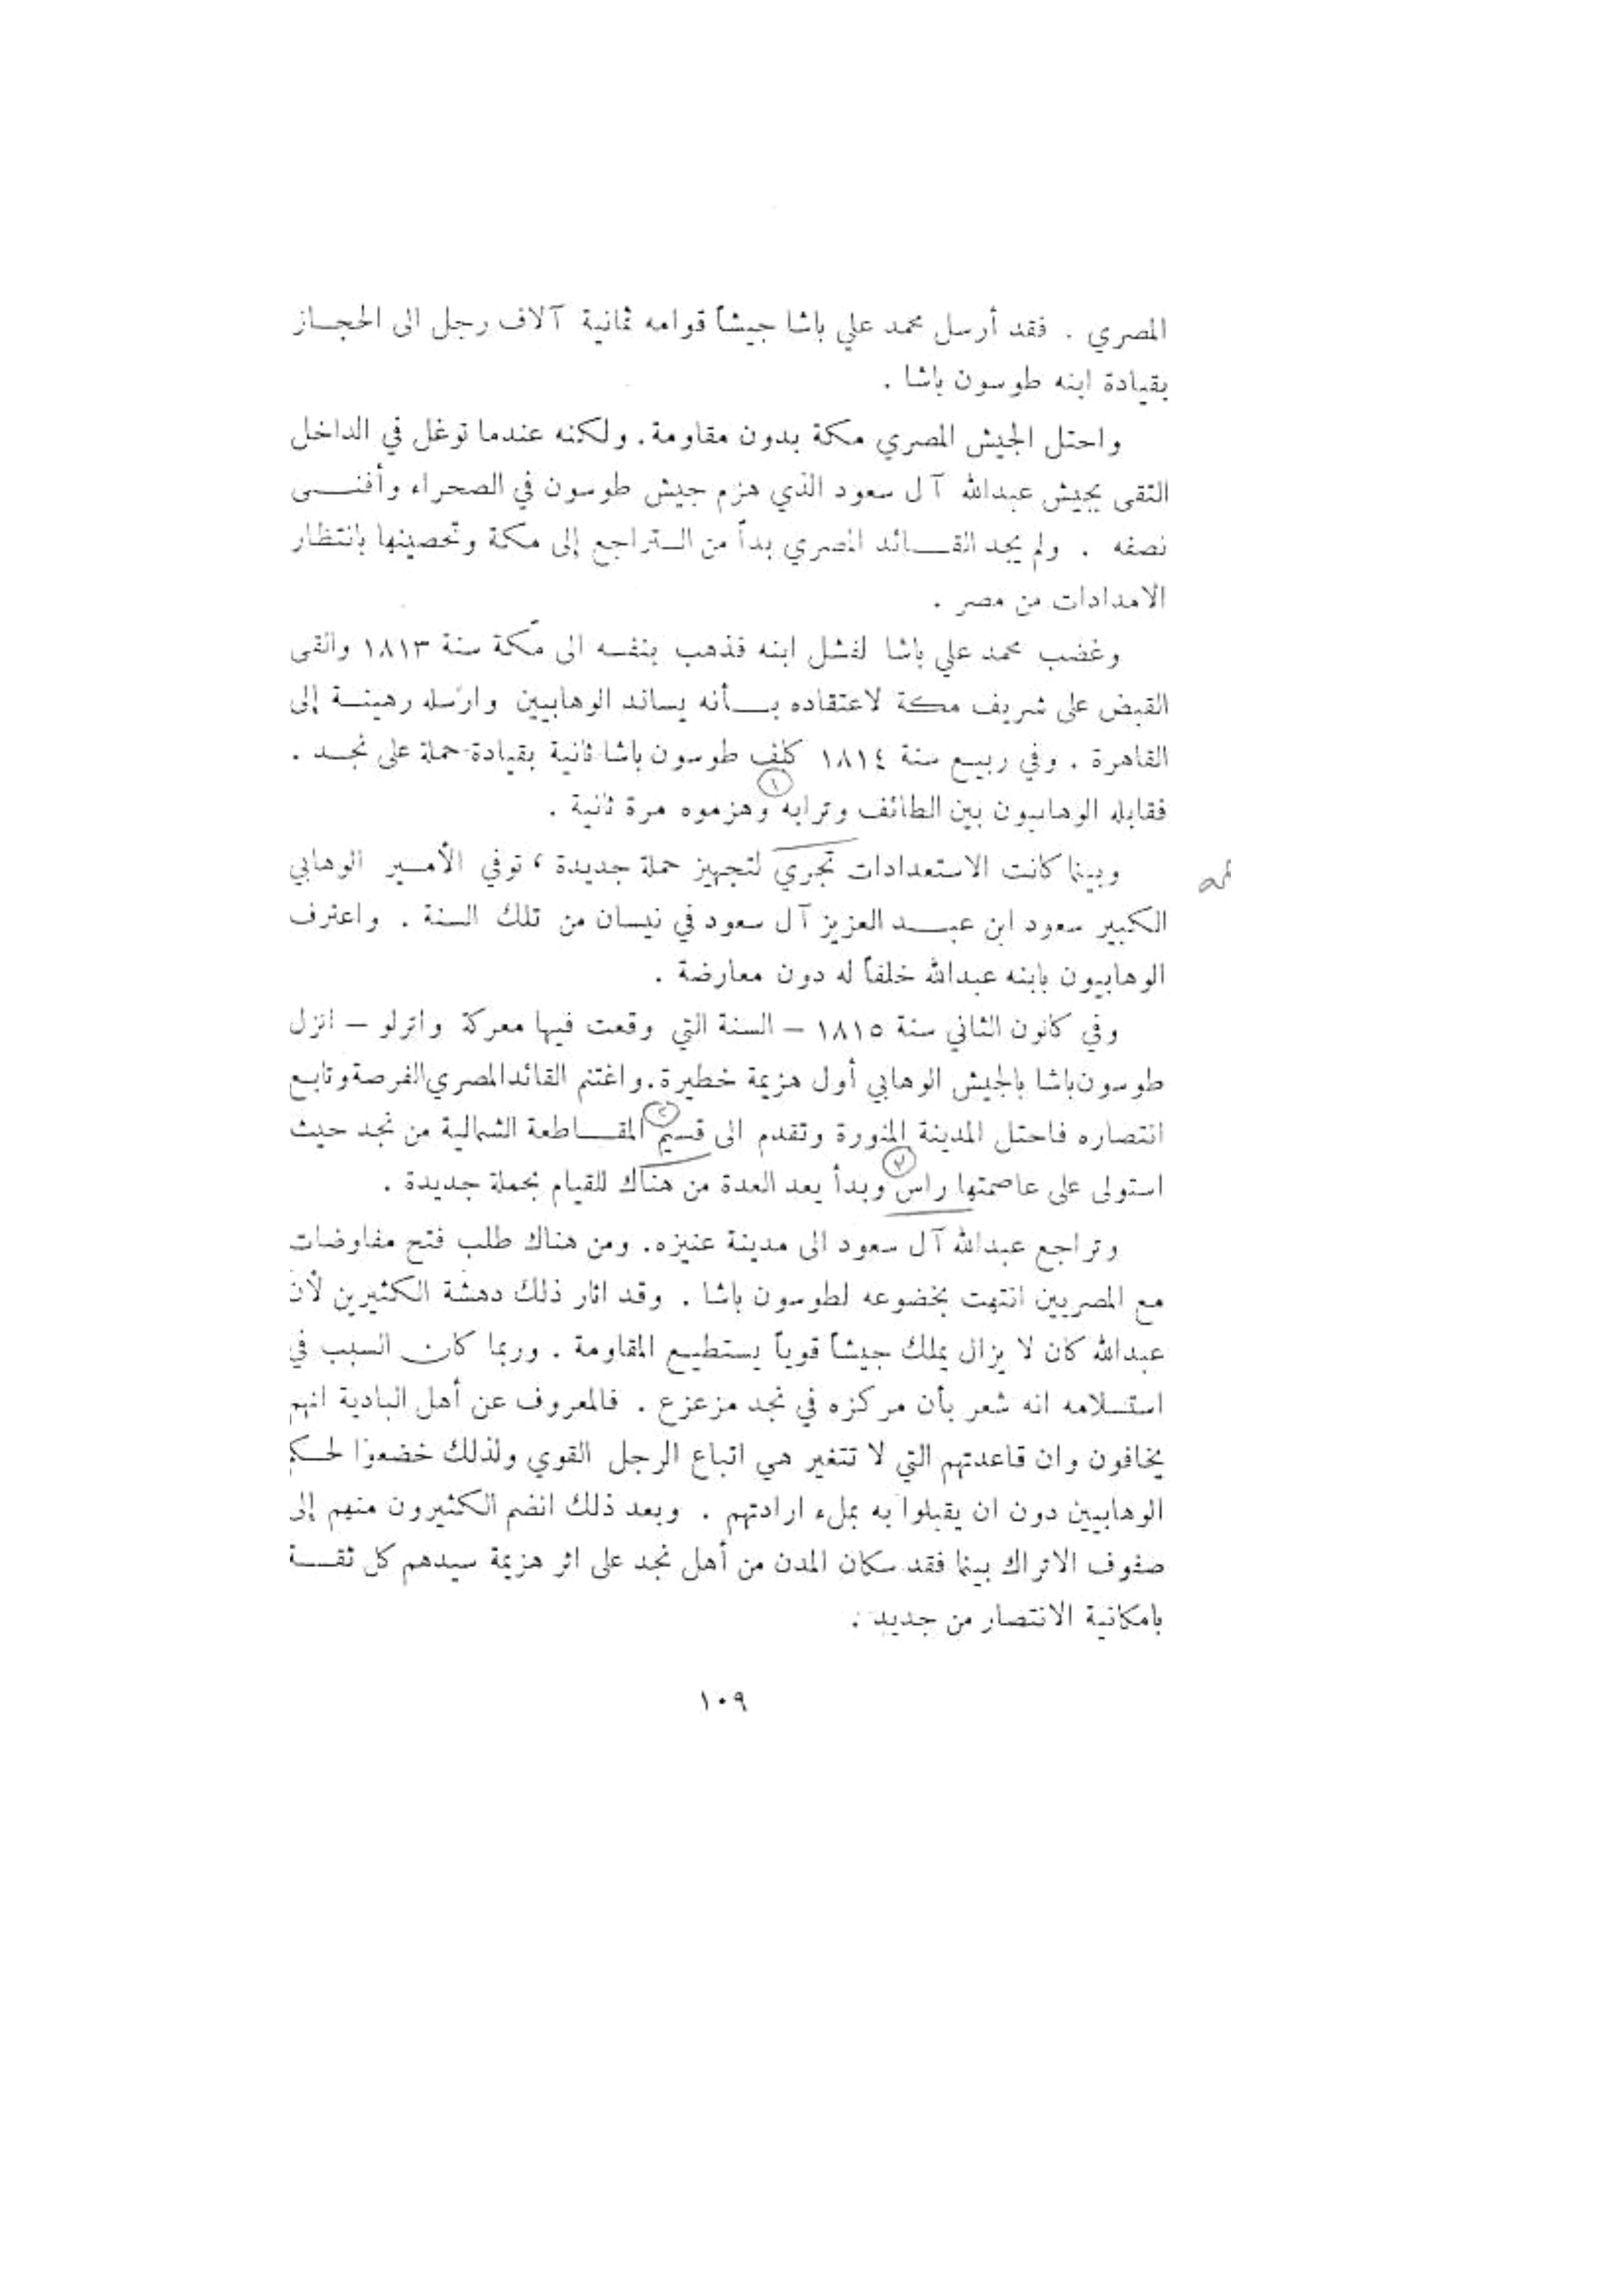 المصري . فقد أرسل محمد علي باشا جيشاً قوامه ثمانية آلاف رجل الى الحجاز
بقيادة ابنه طوسون باشا .
واحتل الجيش المصري مكة بدون مقاومة. ولكنه عندما توغل في الداخل
التقى بجيش عبدالله آل سعود الذي هزم جيش طوسون في الصحراء وأفنى
نصفه . ولم يجد القائد المصري بداً من التراجع إلى مكة وتحصينها بانتظار
الامدادات من مصر .
وغضب محمد علي باشا لفشل ابنه فذهب بنفسه الى مكة سنة ١٨١٣ والقى
القبض على شريف مكة لاعتقاده بأنه يساند الوهابيين وارسله رهينة إلى
القاهرة . وفي ربيع سنة ١٨١٤ كلف طوسون باشا ثانية بقيادة حملة على نجد .
فقابله الوهابيون بين الطائف وترابه (١) وهزموه مرة ثانية .
وبينما كانت الاستعدادات تجري لتجهيز حملة جديدة ، توفي الأمير الوهابي
الكبير سعود ابن عبد العزيز آل سعود في نيسان من تلك السنة . واعترف
الوهابيون بابنه عبدالله خلفاً له دون معارضة .
وفي كانون الثاني سنة ١٨١٥ – السنة التي وقعت فيها معركة واترلو – انزل
طوسون باشا بالجيش الوهابي أول هزيمة خطيرة. واغتنم القائد المصري الفرصة وتابع
انتصاره فاحتل المدينة المنورة وتقدم الى قسيم (٢) المقاطعة الشمالية من نجد حيث
استولى على عاصمتها راس (٣) وبدأ يعد العدة من هناك للقيام بحملة جديدة .
وتراجع عبدالله آل سعود الى مدينة عنيزه. ومن هناك طلب فتح مفاوضات
مع المصريين انتهت بخضوعه لطوسون باشا . وقد اثار ذلك دهشة الكثيرين لأن
عبدالله كان لا يزال يملك جيشاً قوياً يستطيع المقاومة . وربما كان السبب في
استسلامه انه شعر بأن مركزه في نجد مزعزع . فالمعروف عن أهل البادية انهم
يخافون وان قاعدتهم التي لا تتغير هي اتباع الرجل القوي ولذلك خضعوا لحكم
الوهابيين دون ان يقبلوا به بملء ارادتهم . وبعد ذلك انضم الكثيرون منهم إلى
صفوف الاتراك بينما فقد سكان المدن من أهل نجد على اثر هزيمة سيدهم كل ثقة
بامكانية الانتصار من جديد .
١٠٩